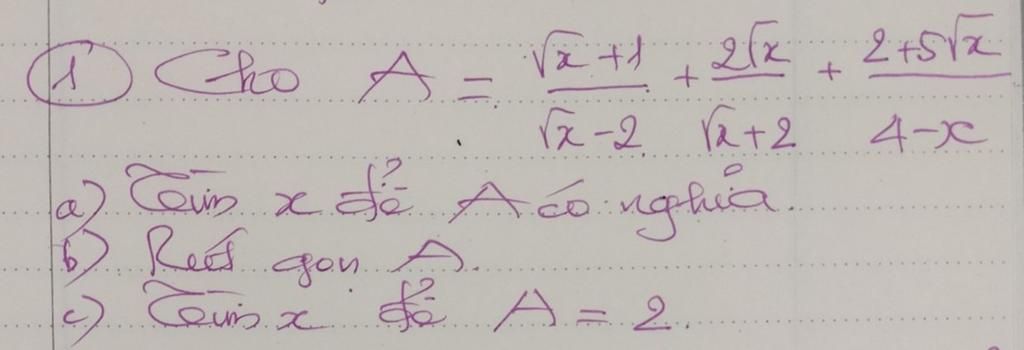 1 Cho A = \frac{\sqrt{x}+1}{\sqrt{x}-2} + \frac{2\sqrt{x}}{\sqrt{x}+2} + \frac{2+5\sqrt{x}}{4-x}
a) Tìm x để A có nghĩa.
b) Rút gọn A.
c) Tìm x để A = 2.